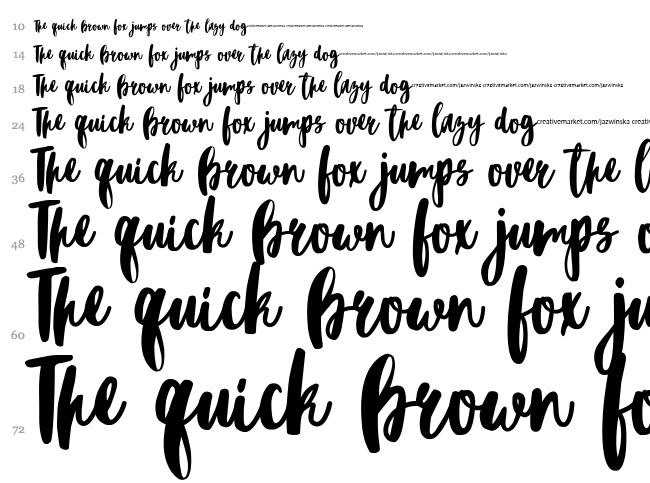 10 The quick brown fox jumps over the lazy dog
14 The quick brown fox jumps over the lazy dog creativemarket.com/jazwinska creativemarket.com/jazwinska
18 The quick brown fox jumps over the lazy dog creativemarket.com/jazwinska creativemarket.com/jazwinska
24 The quick brown fox jumps over the lazy dog creativemarket.com/jazwinska creati
36 The quick brown fox jumps over the l
48 The quick brown fox jumps o
60 The quick brown fox ju
72 The quick brown fo